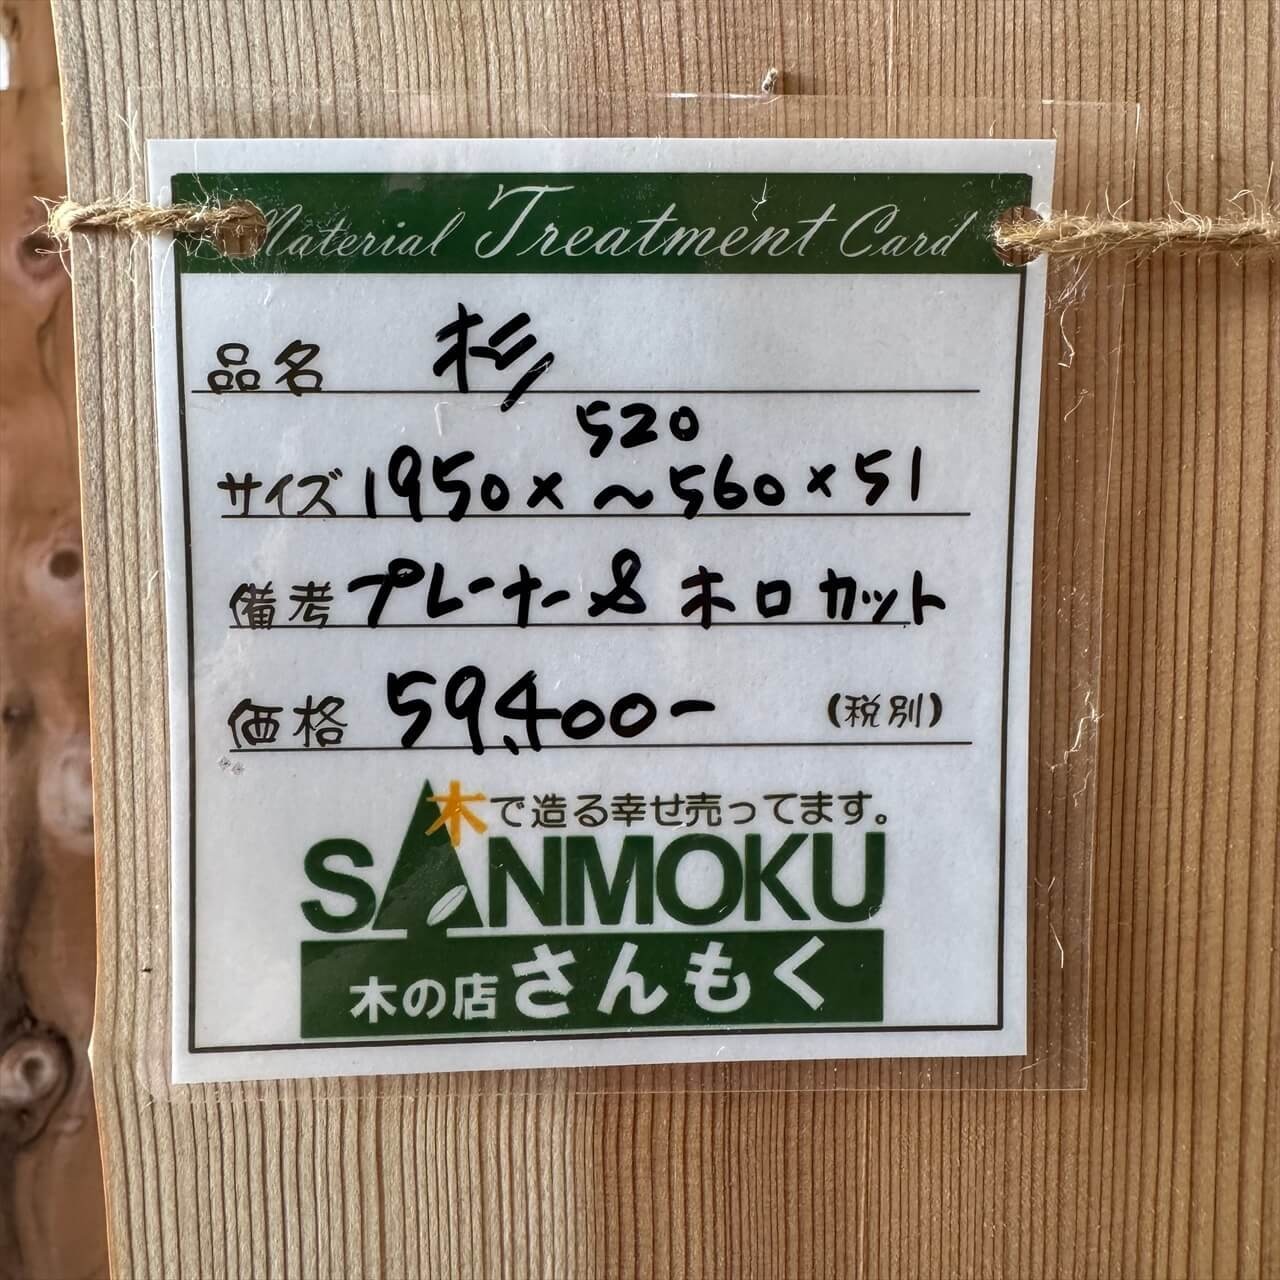 Material Treatment Card
品名 杉
520
サイズ 1950×～560×51
備考 プレーナー&木口カット
価格 59,400- (税別)
木で造る幸せ売ってます。
SANMOKU
木の店さんもく